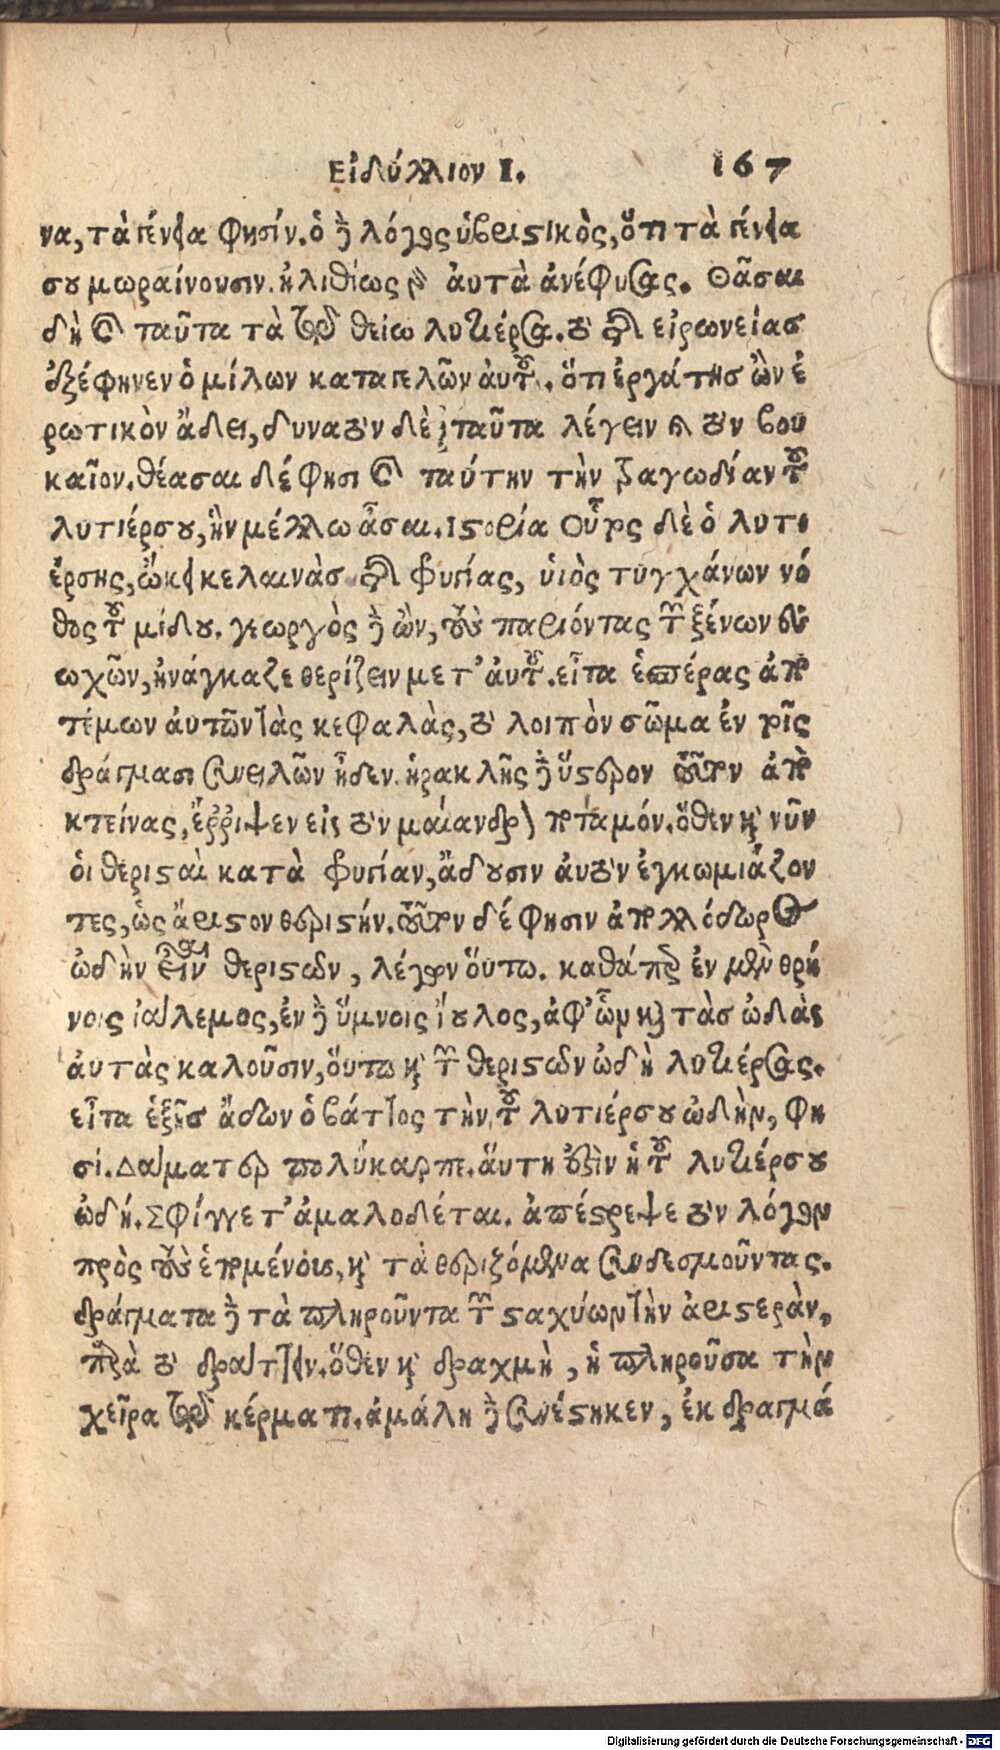 Εἰδύλλιον I. 167
να, τὰ γένεια φησίν. ὁ ȣ̓͂ λόγος ὑβριστικὸς, ὅτι τὰ γένεια
σου μωραίνουσιν. ἠλιθίως γὰρ αὐτὰ ἀνέφυσας. Θᾶσαι
δὴ καὶ ταῦτα τὰ τῶ θείω λυτιέρσα. τὸ ἐπὶ εἰρωνείας
ἐξέφηνεν ὁ μίλων καταγελῶν αὐτοῦ. ὅτι ἐργάτης ὢν ἐ
ρωτικὸν ᾄδει, δύναται δὲ καὶ ταῦτα λέγειν τὸν βου
καῖον. θέασαι δέ φησι καὶ ταύτην τὴν τραγωδίαν τοῦ
λυτιέρσου, ἣν μέλλω ᾆσαι. Ιστορία Οὗτος δὲ ὁ λυτι
έρσης, ᾤκει κελαινὰς τῆς φρυγίας, υἱὸς τυγχάνων νό
θος τοῦ μίδου. γεωργὸς δὲ ὢν, τοὺς παριόντας τῶν ξένων εὐ
ωχῶν, ἠνάγκαζε θερίζειν μετ' αὐτοῦ. εἶτα ἑσπέρας ἀπο
τέμων αὐτῶν τὰς κεφαλὰς, τὸ λοιπὸν σῶμα ἐν τοῖς
δράγμασι συνειλῶν ᾖδεν. ἡρακλῆς δὲ ὕστερον τοῦτον ἀπο
κτείνας, ἔῤῥιψεν εἰς τὸν μαίανδρον ποταμόν. ὅθεν καὶ νῦν
οἱ θερισταὶ κατὰ φρυγίαν, ᾄδουσιν αὐτὸν ἐγκωμιάζον
τες, ὡς ἄριστον θεριστήν. τοῦτον δέ φησιν ἀπολλόδωρος
ὠδὴν εἶναι θεριστῶν, λέγων οὕτω. καθάπερ ἐν μὲν θρή
νοις ἰάλεμος, ἐν δὲ ὕμνοις ἴουλος, ἀφ' ὧν καὶ τὰς ὠδὰς
αὐτὰς καλοῦσιν, οὕτω καὶ τῶν θεριστῶν ὠδὴ λυτιέρσας.
εἶτα ἑξῆς ᾄδων ὁ βάττος τὴν τοῦ λυτιέρσου ὠδὴν, φη
σί. Δάματερ πολύκαρπε. αὕτη ἐστὶν ἡ τοῦ λυτιέρσου
ὠδή. Σφίγγετ' ἀμαλοδέται. ἀπέστρεψε τὸν λόγον
πρὸς τοὺς ἑπομένους, καὶ τὰ θεριζόμενα συνδεσμοῦντας.
δράγματα δὲ τὰ πληροῦντα τῶν σταχύων τὴν ἀριστερὰν,
παρὰ τὸ δράττειν. ὅθεν καὶ δραχμὴ, ἡ πληροῦσα τὴν
χεῖρα τῶ κέρματι. ἀμάλη δὲ συνέστηκεν, ἐκ δραγμά